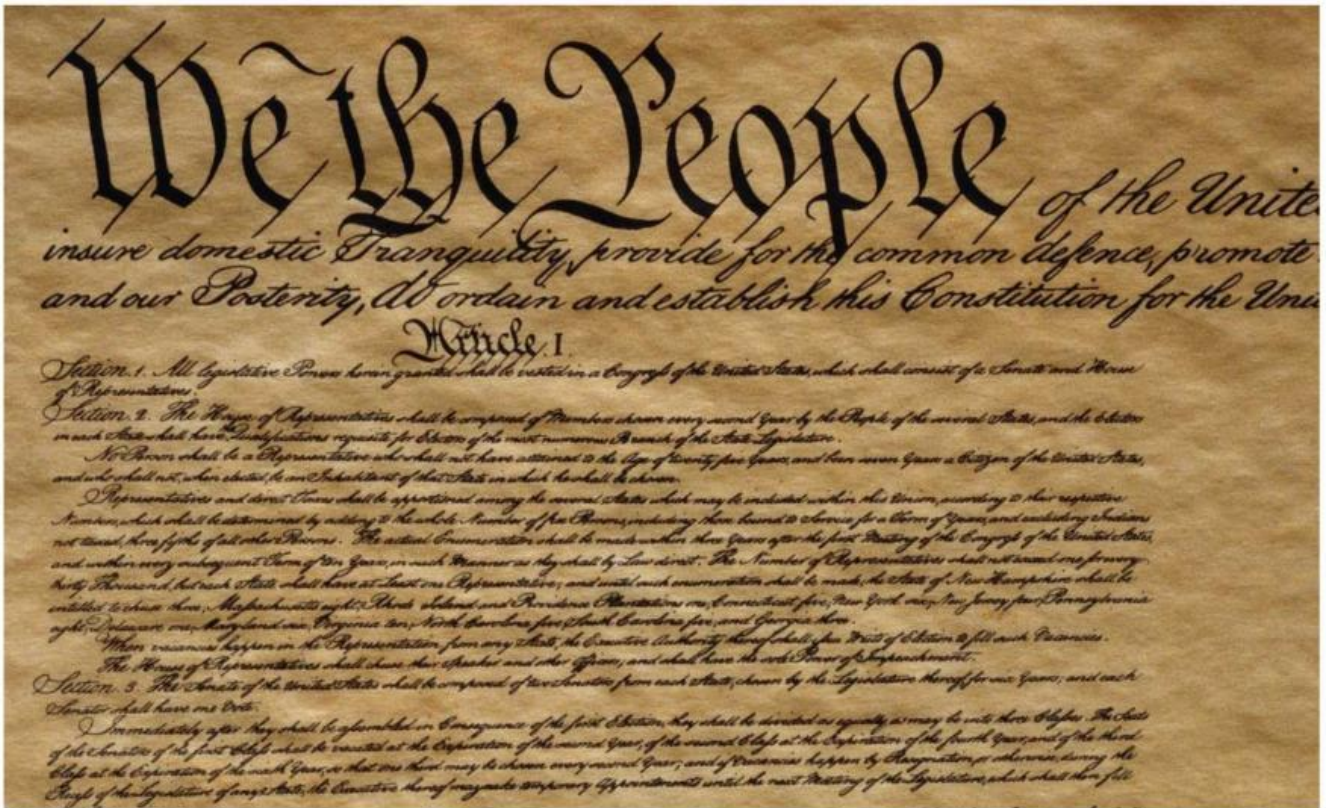 We the People of the Unite
insure domestic Tranquility, provide for the common defence, promote
and our Posterity, do ordain and establish this Constitution for the Uni
Article. I.
Section. 1. All legislative Powers herein granted shall be vested in a Congress of the United States, which shall consist of a Senate and House
of Representatives.
Section. 2. The House of Representatives shall be composed of Members chosen every second Year by the People of the several States, and the Electors
in each State shall have Qualifications requisite for Electors of the most numerous Branch of the State Legislature.
No Person shall be a Representative who shall not have attained to the Age of twenty five Years, and been seven Years a Citizen of the United States,
and who shall not, when elected, be an Inhabitant of that State in which he shall be chosen.
Representatives and direct Taxes shall be apportioned among the several States which may be included within this Union, according to their respective
Numbers, which shall be determined by adding to the whole Number of free Persons, including those bound to Service for a Term of Years, and excluding Indians
not taxed, three fifths of all other Persons. The actual Enumeration shall be made within three Years after the first Meeting of the Congress of the United States,
and within every subsequent Term of ten Years, in such Manner as they shall by Law direct. The Number of Representatives shall not exceed one for every
thirty Thousand, but each State shall have at Least one Representative; and until such enumeration shall be made, the State of New Hampshire shall be
entitled to chuse three, Massachusetts eight, Rhode Island and Providence Plantations one, Connecticut five, New York six, New Jersey four, Pennsylvania
eight, Delaware one, Maryland six, Virginia ten, North Carolina five, South Carolina five, and Georgia three.
When vacancies happen in the Representation from any State, the Executive Authority thereof shall issue Writs of Election to fill such Vacancies.
The House of Representatives shall chuse their Speaker and other Officers; and shall have the sole Power of Impeachment.
Section. 3. The Senate of the United States shall be composed of two Senators from each State, chosen by the Legislature thereof, for six Years; and each
Senator shall have one Vote.
Immediately after they shall be assembled in Consequence of the first Election, they shall be divided as equally as may be into three Classes. The Seats
of the Senators of the first Class shall be vacated at the Expiration of the second Year, of the second Class at the Expiration of the fourth Year, and of the third
Class at the Expiration of the sixth Year, so that one third may be chosen every second Year; and if Vacancies happen by Resignation, or otherwise, during the
Recess of the Legislature of any State, the Executive thereof may make temporary Appointments until the next Meeting of the Legislature, which shall then fill